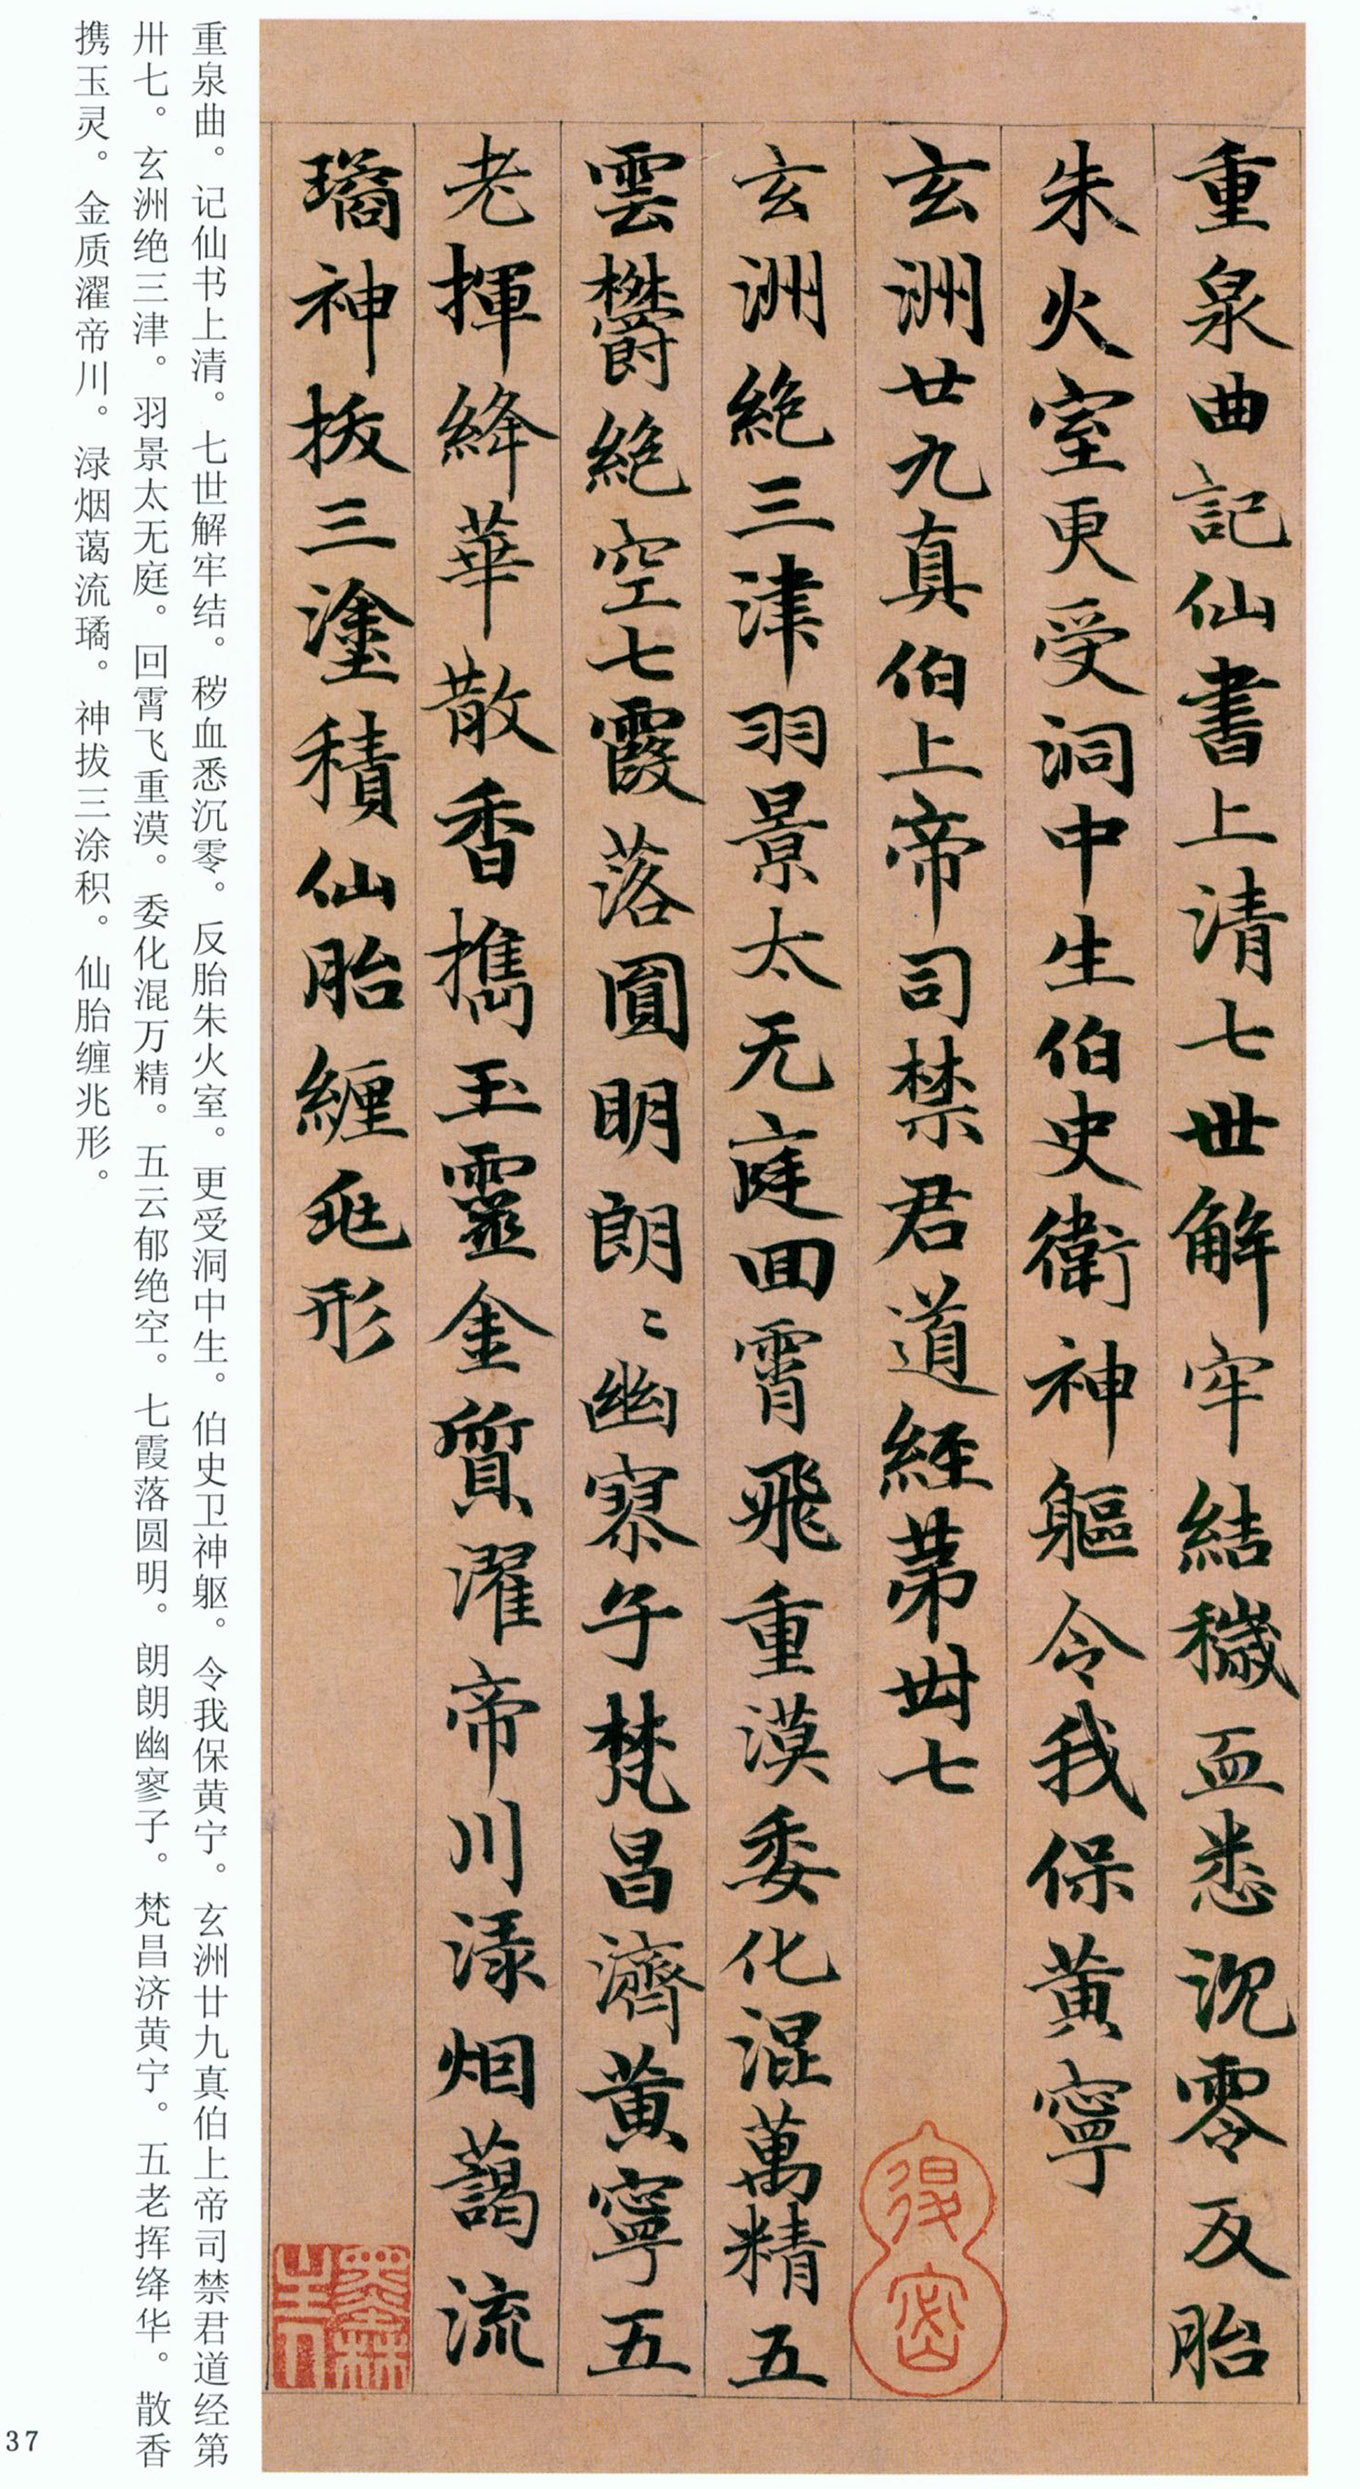 重泉曲記仙書上清七世解牢結穢血悉沉零反胎
朱火室更受洞中生伯史衛神軀令我保黄寧
玄洲廿九真伯上帝司禁君道經苐卌七
玄洲絶三津羽景太无庭回霄飛重漠委化混萬精五
雲欝絶空七霞落圓明朗〻幽寥子梵昌濟黄寧五
老揮絳華散香擕玉靈金質濯帝川渌烟藹流
璚神拔三塗積仙胎纏兆形
重泉曲。记仙书上清。七世解牢结。秽血悉沉零。反胎朱火室。更受洞中生。伯史卫神躯。令我保黄宁。玄洲廿九真伯上帝司禁君道经第
卅七。玄洲绝三津。羽景太无庭。回霄飞重漠。委化混万精。五云郁绝空。七霞落圆明。朗朗幽寥子。梵昌济黄宁。五老挥绛华。散香
携玉灵。金质濯帝川。渌烟蔼流璚。神拔三涂积。仙胎缠兆形。
37